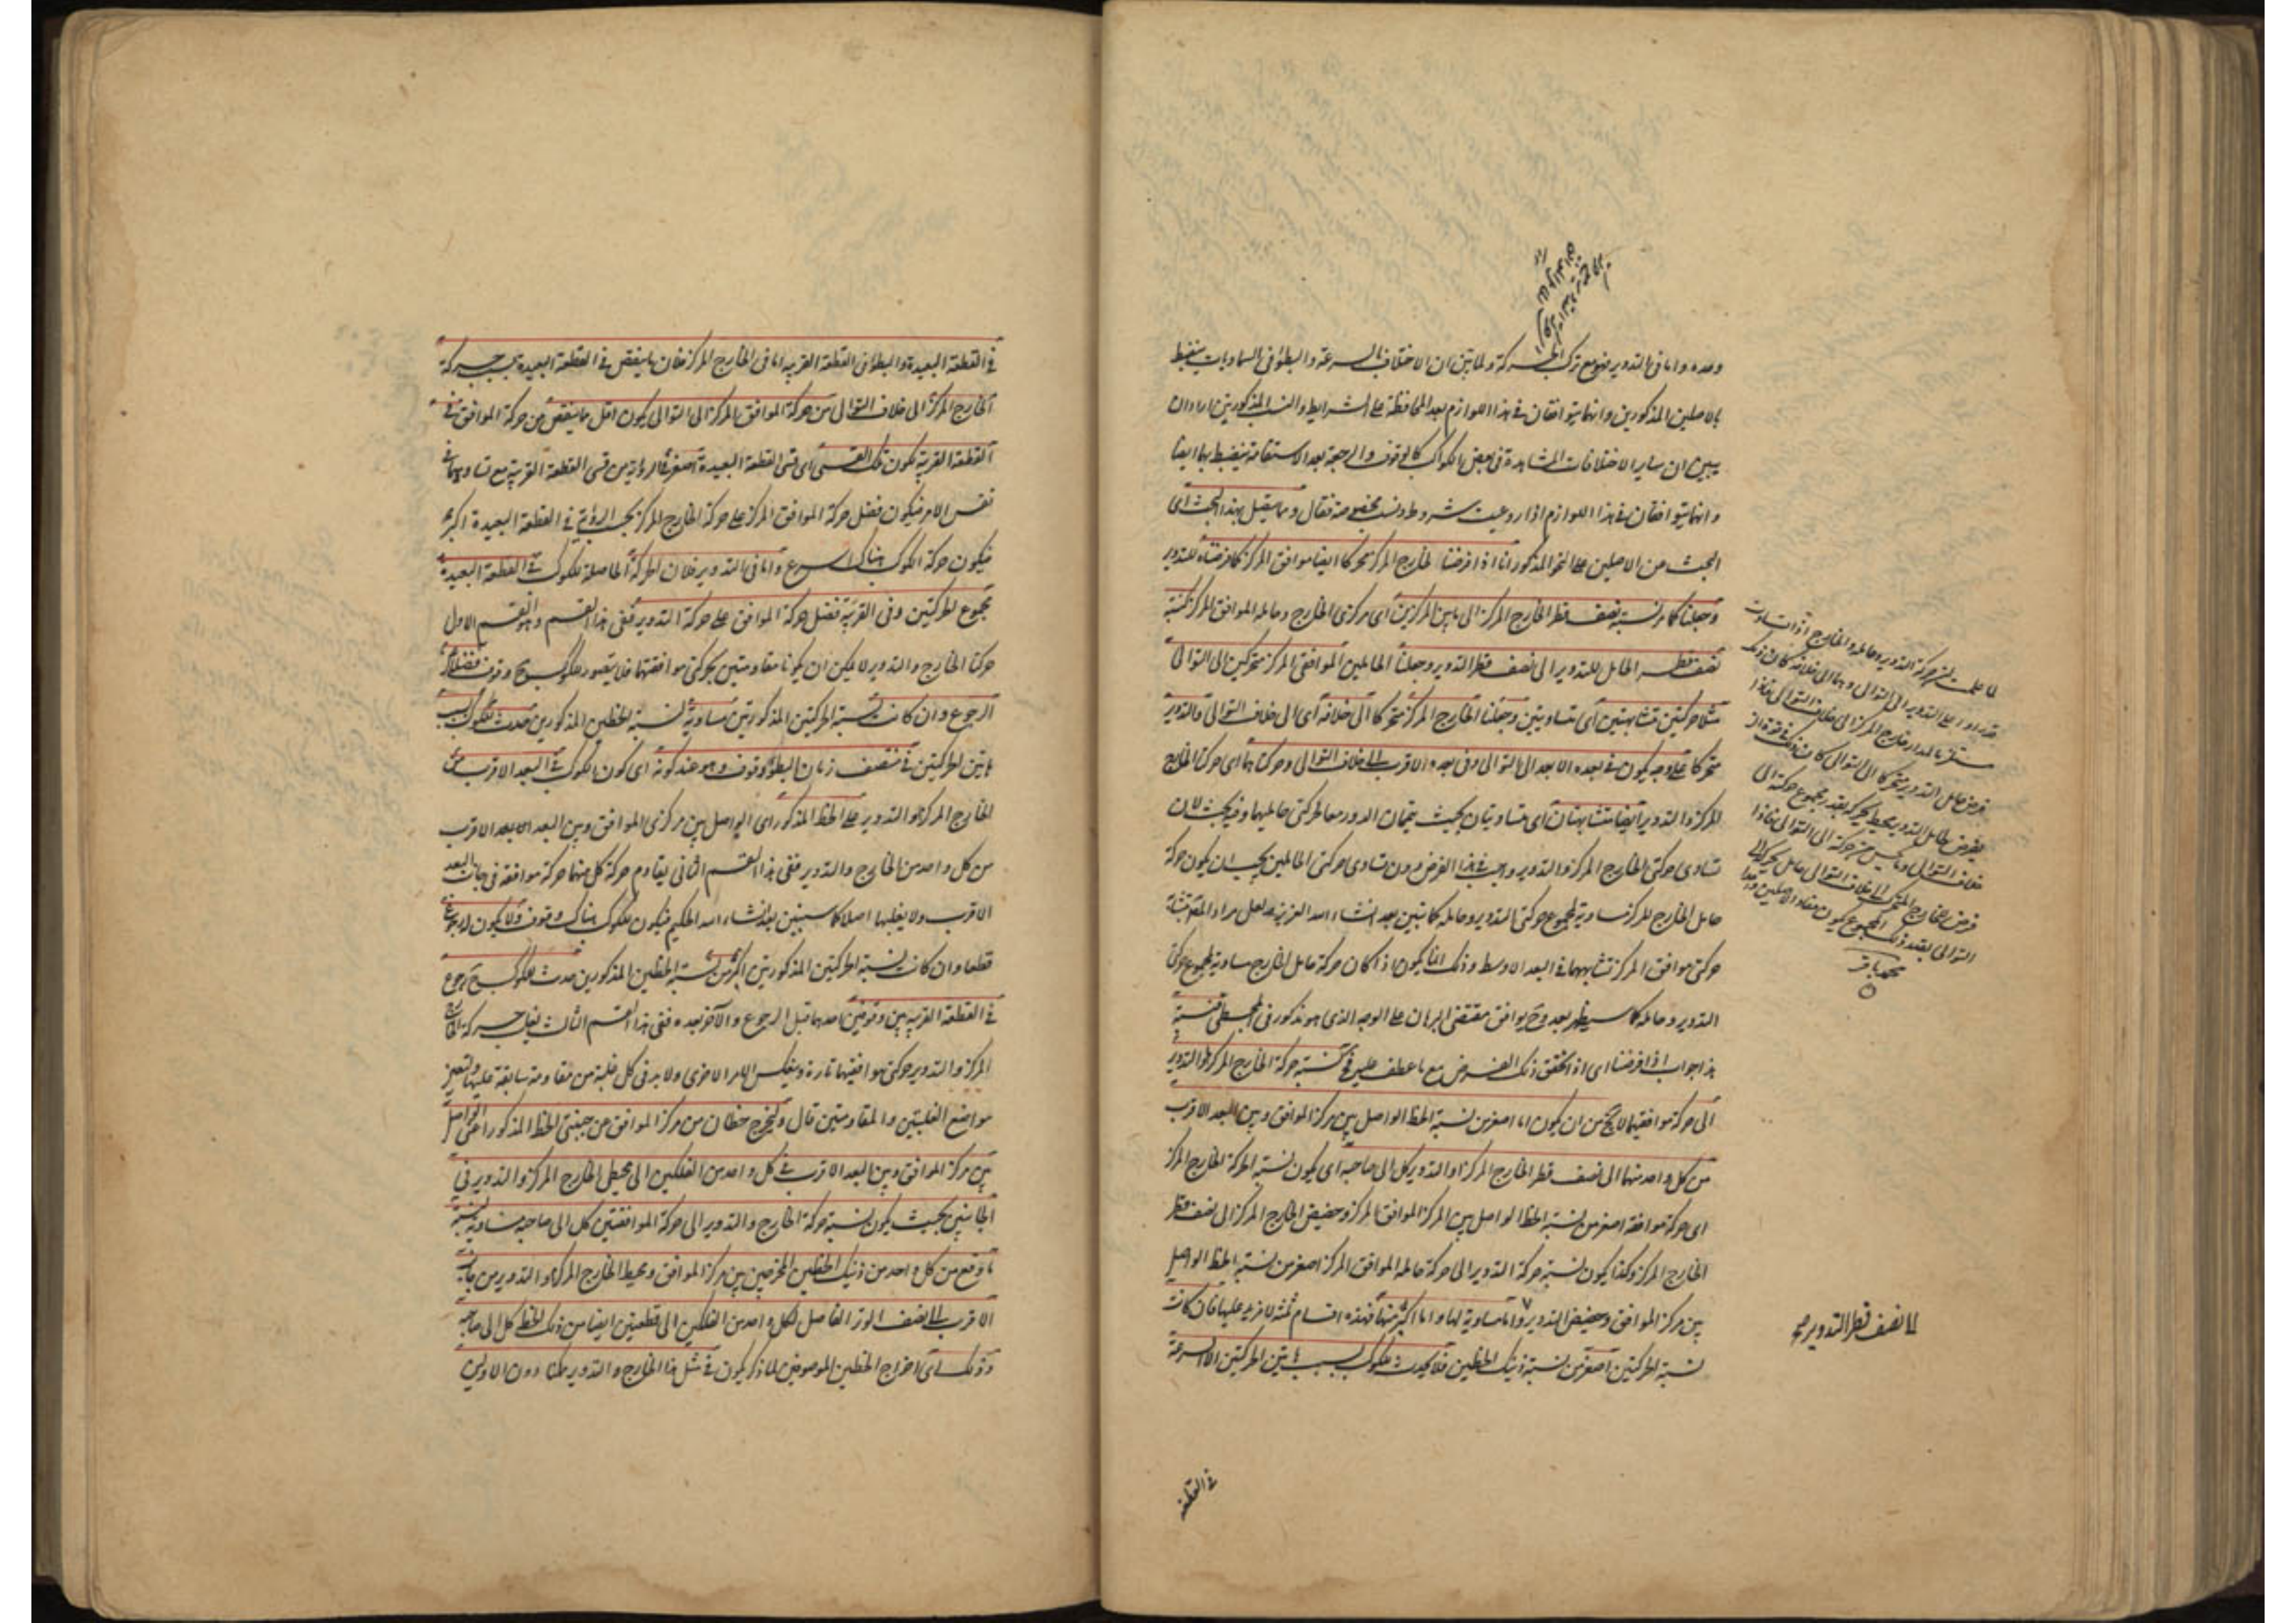 وحده واما في التدوير فهو مع تركب الحركة ولما تبين ان الاختلاف بالسرعة والبطؤ في السماويات ينضبط
بالاصلين المذكورين وانهما يتوافقان في هذا اللوازم بعد المحافظة على الشرايط والنسب المذكورتين اراد ان
يبين ان ساير الاختلافات المشاهدة في بعض الكواكب كالوقوف والرجعة بعد الاستقامة ينضبط بهما ايضا
وانهما يتوافقان في هذا اللوازم اذا روعيت شروط ونسب مخصوصة فقال ومما يتصل بهذا البحث اى
البحث من الاصلين على النحو المذكور انا اذا فرضنا الخارج المركز متحركا ايضا موافق المركز كما فرضناه للتدوير
وجعلنا كما مر نسبة نصف قطر الخارج المركز الى ما بين المركزين اى مركزى الخارج وحامله الموافق المركز كنسبة
نصف قطر الحامل للتدوير الى نصف قطر التدوير وجعلنا الحاملين الموافقى المركز متحركين الى التوالى
مثلا حركتين متشابهتين اى متساويتين وجعلنا الخارج المركز متحركا الى خلافه اى الى خلاف التوالى والتدوير
متحركا على وجه يكون في بعده الابعد الى التوالى وفى بعده الاقرب الى خلاف التوالى وحركتاهما اى حركتا الخارج
المركز والتدوير ايضا متشابهتان اى متساويتان بحيث يتمان الدور معا لحركتى حامليهما وفيه بحث لان
تساوى حركتى الخارج المركز والتدوير واجب في هذا الفرض دون تساوى حركتى الحاملين بل يجب ان يكون حركة
حامل الخارج المركز مساوية لمجموع حركتى التدوير وحامله كما نبين بعد انشاء الله العزيز ولعل مراد المص بتشابه
حركتى موافق المركز تشابههما في البعد الاوسط وذلك انما يكون اذا كان حركة حامل الخارج مساوية لمجموع حركتى
التدوير وحامله كما سيظهر بعد وح يوافق مقتضى البرهان على الوجه الذى هو مذكور فى المجسطى فنسبة
هذا جواب اذا فرضنا اى اذا تحقق ذلك الفرض مع ما عطف عليه فح نسبة حركة الخارج المركز او التدوير
الى حركة موافقيهما لا يخ من ان يكون اما اصغر من نسبة الخط الواصل بين مركز الموافق وبين البعد الاقرب
من كل واحد منهما الى نصف قطر الخارج المركز او التدوير كل الى صاحبه اى يكون نسبة حركة الخارج المركز
اى حركة موافقه اصغر من نسبة الخط الواصل بين المركز الموافق المركز وحضيض الخارج المركز الى نصف قطر
الخارج المركز وكذا يكون نسبة حركة التدوير الى حركة حامله الموافق المركز اصغر من نسبة الخط الواصل
بين مركز الموافق وحضيض التدوير واما مساوية لها واما اكبر منها فهذه اقسام ثلثة لا مزيد عليها فان كانت
نسبة الحركتين اصغر من نسبة ذينك الخطين فلا يحدث للكوكب بسبب هاتين الحركتين الا السرعة
لما علمت ان حركة التدوير وحامله والخارج اذا تساوت
محمد باقر
الى نصف قطر التدوير صح
في القطعة
في القطعة البعيدة والبطؤ في القطعة القريبة اما في الخارج المركز فلان ما ينقص في القطعة البعيدة بسبب حركة
الخارج المركز الى خلاف التوالى من حركة الموافق المركز الى التوالى يكون اقل مما ينقص من حركة الموافق في
القطعة القريبة لكون تلك القسى اى قسى القطعة البعيدة اصغر في الرؤية من قسى القطعة القريبة مع تساويهما في
نفس الامر فيكون فضل حركة الموافق المركز على حركة الخارج المركز بحسب الرؤية في القطعة البعيدة اكثر
فيكون حركة الكوكب هناك اسرع واما في التدوير فلان الحركة الحاصلة للكوكب في القطعة البعيدة
مجموع الحركتين وفى القريبة فضل حركة الموافق على حركة التدوير ففى هذا القسم وهو القسم الاول
حركتا الخارج والتدوير لا يمكن ان يكونا مقاومتين لحركتى موافقيهما فلا يتصور للكوكب ح وقوف فضلا عن
الرجوع وان كانت نسبة الحركتين المذكورتين مساوية لنسبة الخطين المذكورين حدث للكوكب بسبب
هاتين الحركتين في منتصف زمان البطؤ وقوف وهو عند كونه اى كون الكوكب في البعد الاقرب من
الخارج المركز او التدوير على الخط المذكور اى الواصل بين مركزى الموافق وبين البعد الابعد الاقرب
من كل واحد من الخارج والتدوير ففى هذا القسم الثانى يقاوم حركة كل منهما حركة موافقه في جانب البعد
الاقرب ولا يغلبها اصلا كما سنبين بعد انشاء الله الحكيم فيكون للكوكب هناك وقوف ولا يكون له رجوع
قطعا وان كانت نسبة الحركتين المذكورتين اكبر من نسبة الخطين المذكورين حدث للكوكب ح رجوع
في القطعة القريبة بين وقوفين احدهما قبل الرجوع والآخر بعده ففى هذا القسم الثالث يغلب حركة الخارج
المركز والتدوير حركتى موافقيهما تارة وينعكس الامر الاخرى ولا بد فى كل غلبة من مقاومة سابقة عليها ولتعيين
مواضع الغلبتين والمقاومتين قال وليخرج خطان من مركز الموافق من جنبتى الخط المذكور اعنى الواصل
بين مركز الموافق وبين البعد الاقرب في كل واحد من الفلكين الى محيطى الخارج المركز والتدوير في
الجانبين بحيث يكون نسبة حركة الخارج والتدوير الى حركة الموافقتين كل الى صاحبه مساوية لنسبة
ما وقع من كل واحد من ذينك الخطين المخرجين بين مركز الموافق ومحيط الخارج المركز او التدوير من جانب
الاقرب الى نصف الوتر الفاصل لكل واحد من الفلكين الى قطعتين ايضا من ذلك الخط كل الى صاحبه
وذلك اى اخراج الخطين الموصوفين لما ذكر يكون في مثل هذا الخارج والتدوير ممكنا دون الاولين